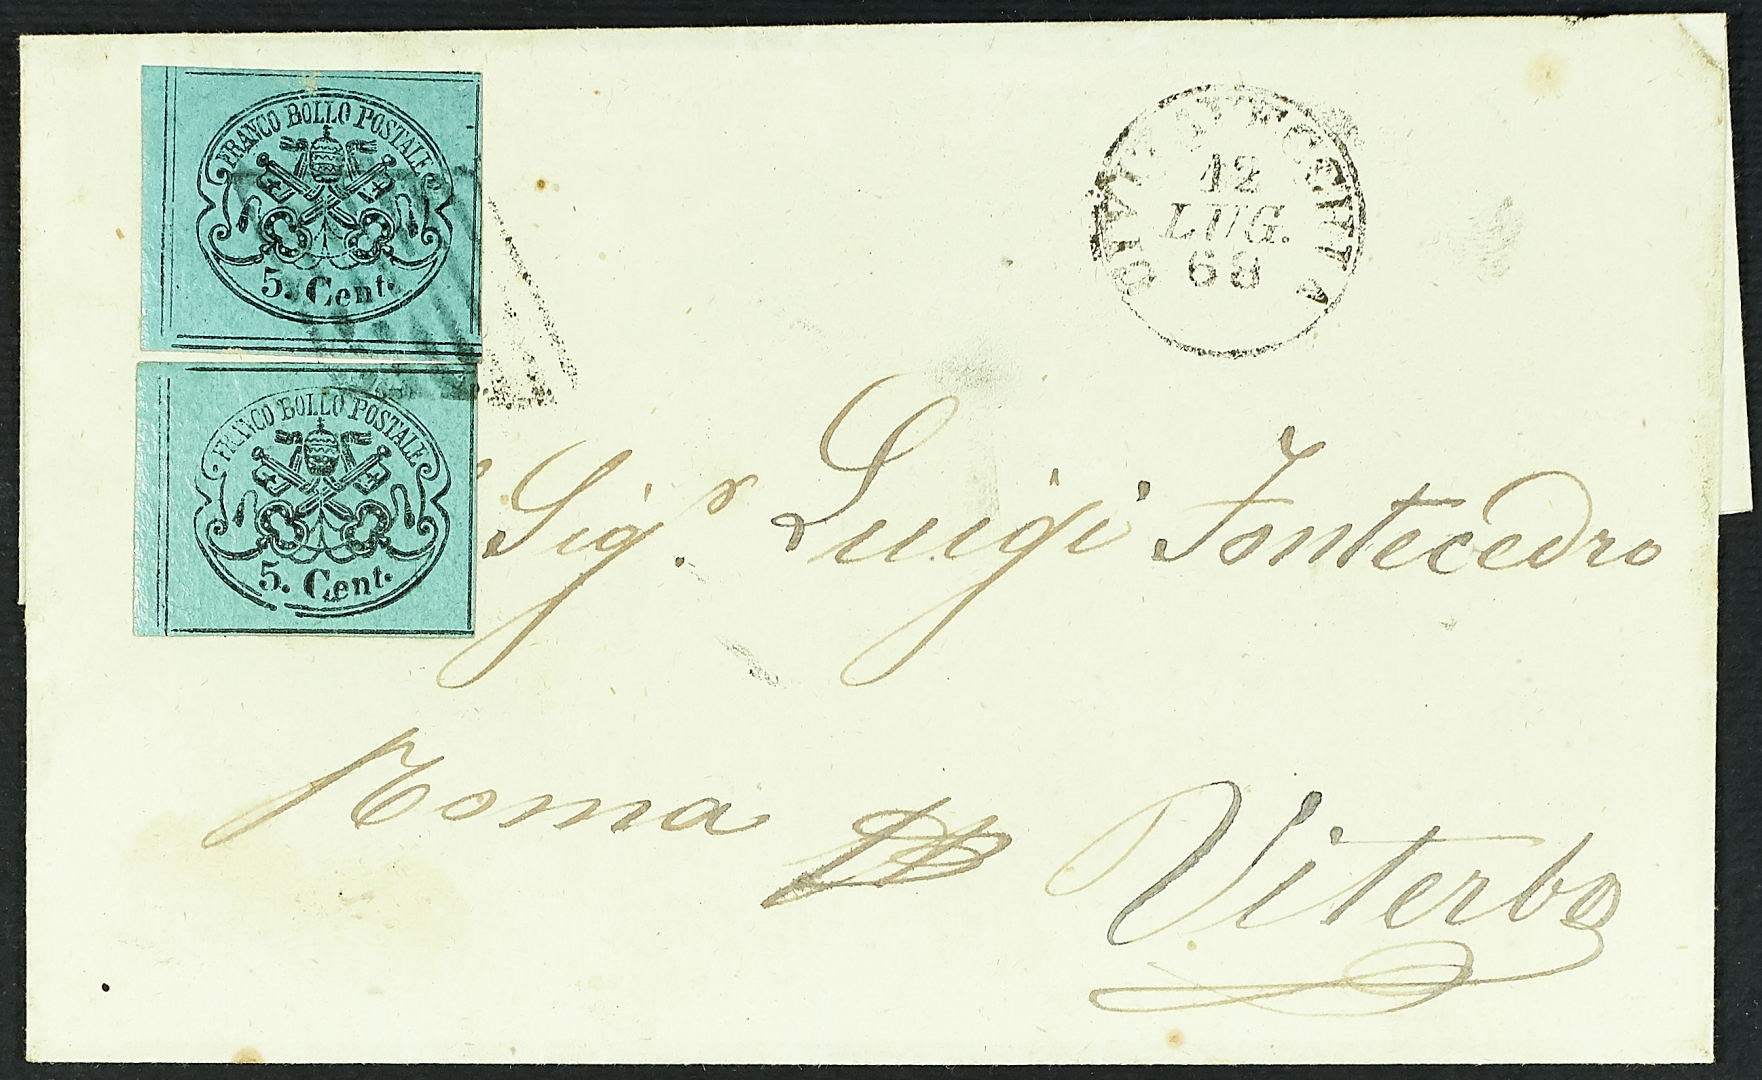 FRANCO BOLLO POSTALE
5. Cent.
FRANCO BOLLO POSTALE
5. Cent.
CIVITAVECCHIA
12
LUG.
68
Sigr. Luigi Fontecedro
Roma Viterbo